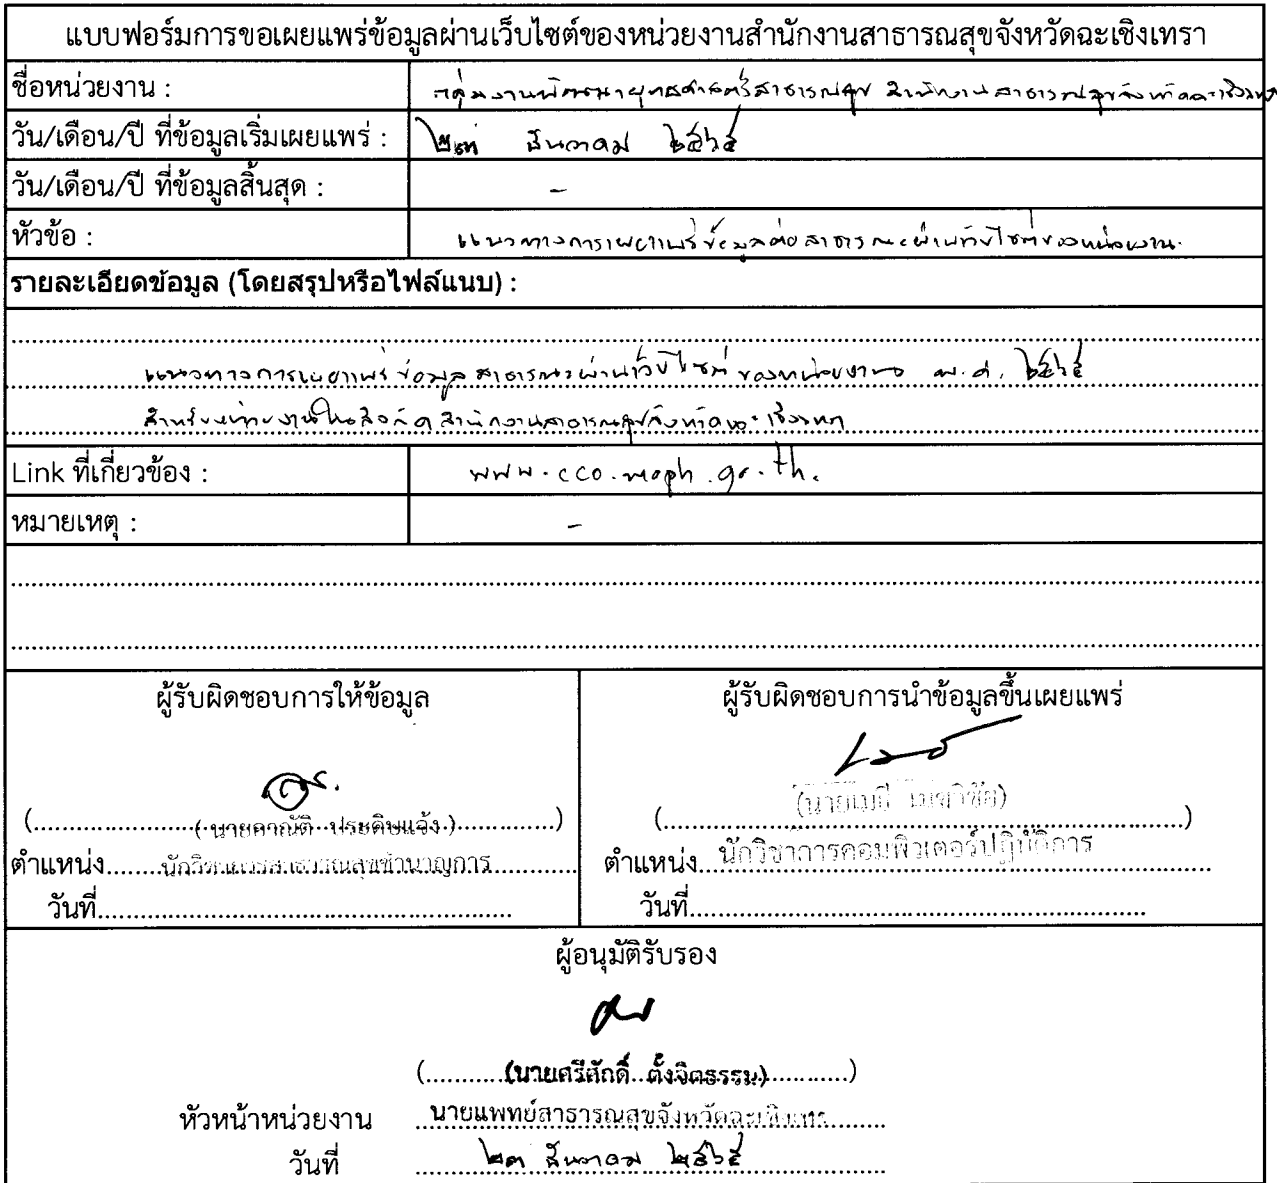 แบบฟอร์มการขอเผยแพร่ข้อมูลผ่านเว็บไซต์ของหน่วยงานสำนักงานสาธารณสุขจังหวัดฉะเชิงเทรา
ชื่อหน่วยงาน : กลุ่มงานพัฒนายุทธศาสตร์สาธารณสุข สำนักงานสาธารณสุขจังหวัดฉะเชิงเทรา
วัน/เดือน/ปี ที่ข้อมูลเริ่มเผยแพร่ : ๒๓ ธันวาคม ๒๕๖๕
วัน/เดือน/ปี ที่ข้อมูลสิ้นสุด : -
หัวข้อ : แนวทางการเผยแพร่ข้อมูลต่อสาธารณะผ่านเว็บไซต์ของหน่วยงาน
รายละเอียดข้อมูล (โดยสรุปหรือไฟล์แนบ) :
แนวทางการเผยแพร่ข้อมูลสาธารณะผ่านเว็บไซต์ของหน่วยงาน พ.ศ. ๒๕๖๕
สำหรับหน่วยงานในสังกัดสำนักงานสาธารณสุขจังหวัดฉะเชิงเทรา
Link ที่เกี่ยวข้อง : www.cco.moph.go.th.
หมายเหตุ : -
ผู้รับผิดชอบการให้ข้อมูล
(นายคาณัติ ประดิษแจ้ง)
ตำแหน่ง นักวิชาการสาธารณสุขชำนาญการ
วันที่
ผู้รับผิดชอบการนำข้อมูลขึ้นเผยแพร่
(นายเมธี
ตำแหน่ง นักวิชาการคอมพิวเตอร์ปฏิบัติการ
วันที่
ผู้อนุมัติรับรอง
(นายศรีศักดิ์ ตั้งจิตธรรม)
หัวหน้าหน่วยงาน นายแพทย์สาธารณสุขจังหวัดฉะเชิงเทรา
วันที่ ๒๓ ธันวาคม ๒๕๖๕